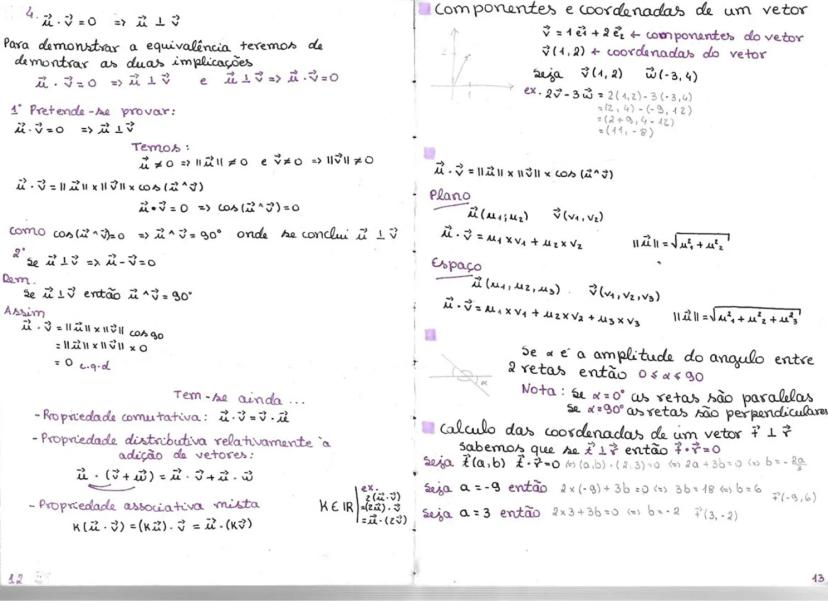 4. u⃗ . v⃗ = 0 => u⃗ ⊥ v⃗
Para demonstrar a equivalência teremos de
demontrar as duas implicações
u⃗ . v⃗ = 0 => u⃗ ⊥ v⃗ e u⃗ ⊥ v⃗ => u⃗ . v⃗ = 0
1º Pretende-se provar:
u⃗ . v⃗ = 0 => u⃗ ⊥ v⃗
Temos:
u⃗ ≠ 0 => ||u⃗|| ≠ 0 e v⃗ ≠ 0 => ||v⃗|| ≠ 0
u⃗ . v⃗ = ||u⃗|| x ||v⃗|| x cos(u⃗ ^ v⃗)
u⃗ . v⃗ = 0 => cos(u⃗ ^ v⃗) = 0
como cos(u⃗ ^ v⃗)=0 => u⃗ ^ v⃗ = 90º onde se conclui u⃗ ⊥ v⃗
2º
Se u⃗ ⊥ v⃗ => u⃗ - v⃗ = 0
Dem.
Se u⃗ ⊥ v⃗ então u⃗ ^ v⃗ = 90º
Assim
u⃗ . v⃗ = ||u⃗|| x ||v⃗|| cos 90
= ||u⃗|| x ||v⃗|| x 0
= 0 c.q.d
Tem-se ainda ...
- Propriedade comutativa: u⃗ . v⃗ = v⃗ . u⃗
- Propriedade distributiva relativamente à
adição de vetores:
u⃗ . (v⃗ + w⃗) = u⃗ . v⃗ + u⃗ . w⃗
- Propriedade associativa mista
K(u⃗ . v⃗) = (Ku⃗) . v⃗ = u⃗ . (Kv⃗)
K ∈ IR
ex.
2(u⃗ . v⃗)
=(2u⃗) . v⃗
=u⃗ . (2v⃗)
12
Componentes e coordenadas de um vetor
v⃗ = 1e⃗1 + 2e⃗2 ← componentes do vetor
v⃗(1,2) ← coordenadas do vetor
Seja v⃗(1,2) w⃗(-3,4)
ex. 2v⃗ - 3w⃗ = 2(1,2) - 3(-3,4)
= (2,4) - (-9,12)
= (2+9, 4-12)
= (11, -8)
u⃗ . v⃗ = ||u⃗|| x ||v⃗|| x cos (u⃗ ^ v⃗)
Plano
u⃗(u1; u2) v⃗(v1, v2)
u⃗ . v⃗ = u1 x v1 + u2 x v2 ||u⃗|| = √(u²1 + u²2)
Espaço
u⃗(u1, u2, u3) . v⃗(v1, v2, v3)
u⃗ . v⃗ = u1 x v1 + u2 x v2 + u3 x v3 ||u⃗|| = √(u²1 + u²2 + u²3)
α
Se α é a amplitude do angulo entre
2 retas então 0 ≤ α ≤ 90
Nota: Se α = 0º as retas são paralelas
Se α = 90º as retas são perpendiculares
Calculo das coordenadas de um vetor t⃗ ⊥ r⃗
Sabemos que se t⃗ ⊥ r⃗ então t⃗ . r⃗ = 0
Seja t⃗(a,b) t⃗ . r⃗ = 0 (=) (a,b) . (2,3) = 0 (=) 2a + 3b = 0 (=) b = -2a/3
Seja a = -9 então 2x(-9) + 3b = 0 (=) 3b = 18 (=) b = 6 t⃗(-9,6)
Seja a = 3 então 2x3 + 3b = 0 (=) b = -2 t⃗(3,-2)
13